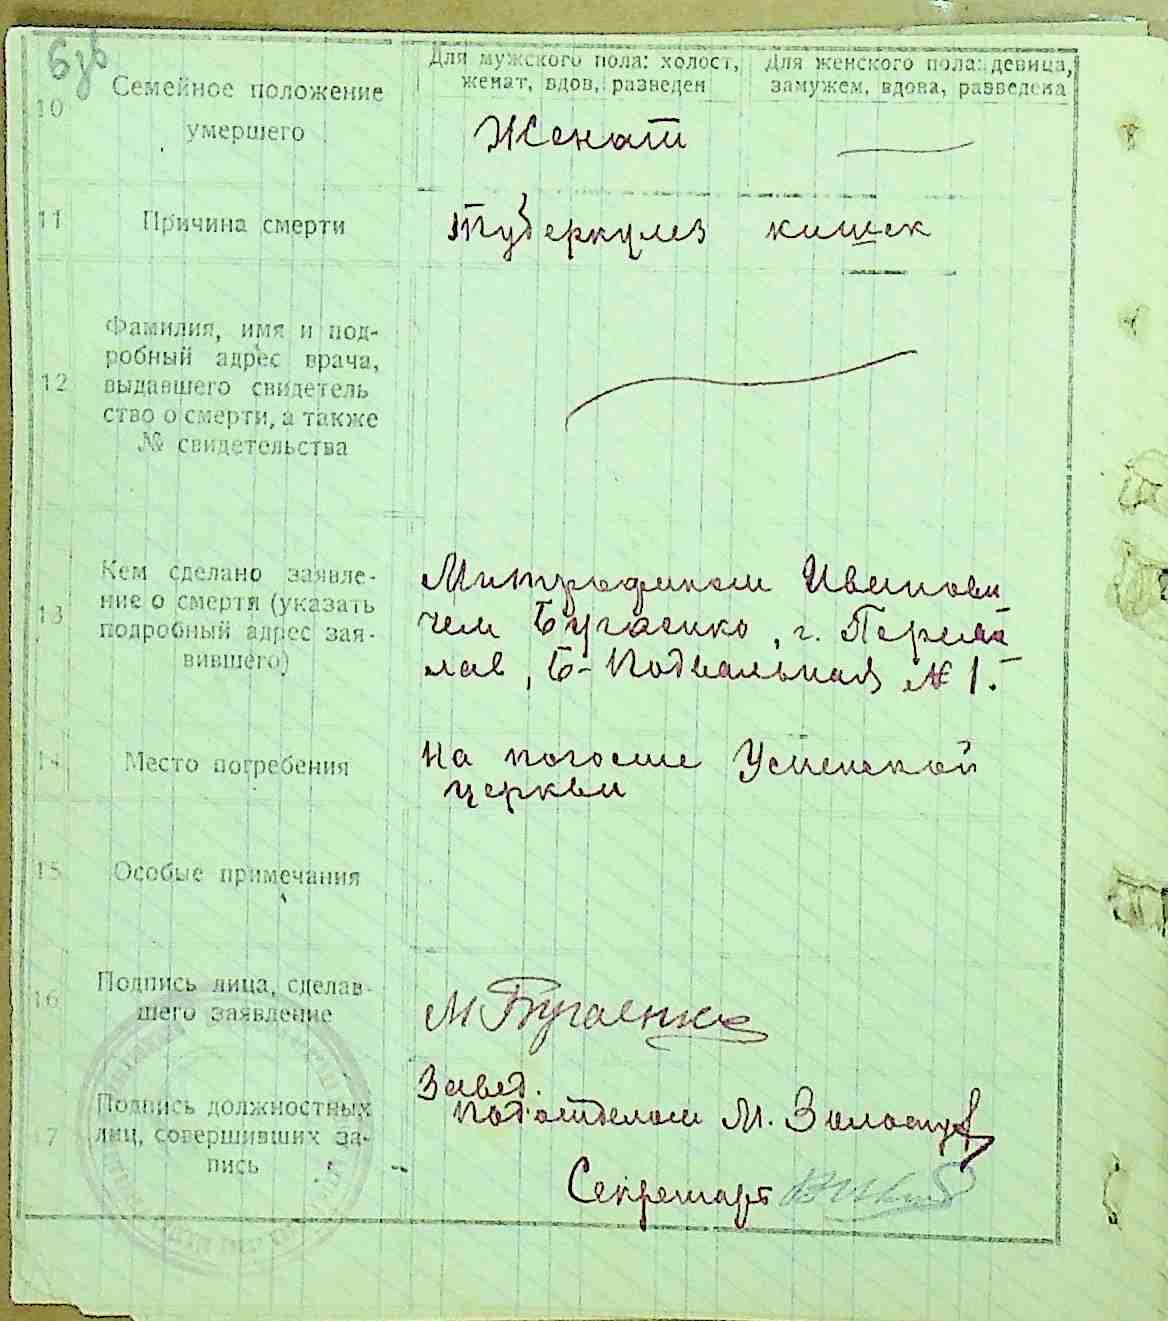 Для мужского пола: холост, женат, вдов, разведен
Для женского пола: девица, замужем, вдова, разведена
10 Семейное положение умершего
Женат
11 Причина смерти
Туберкулез кишек
12
Фамилия, имя и под-
робный адрес врача,
выдавшего свидетель
ство о смерти, а также
№ свидетельства
13
Кем сделано заявле-
ние о смерти (указать
подробный адрес зая-
вившего)
Митрофаном Иванови
чем Бугаенко, г. Переяс
лав, Б-Подвальная № 1.
14 Место погребения
На погосте Успенской
церкви
15 Особые примечания
16
Подпись лица, сделав-
шего заявление
М Бугаенко
17
Подпись должностных
лиц, совершивших за-
пись
Завед.
Подотделом М.
Секретарь